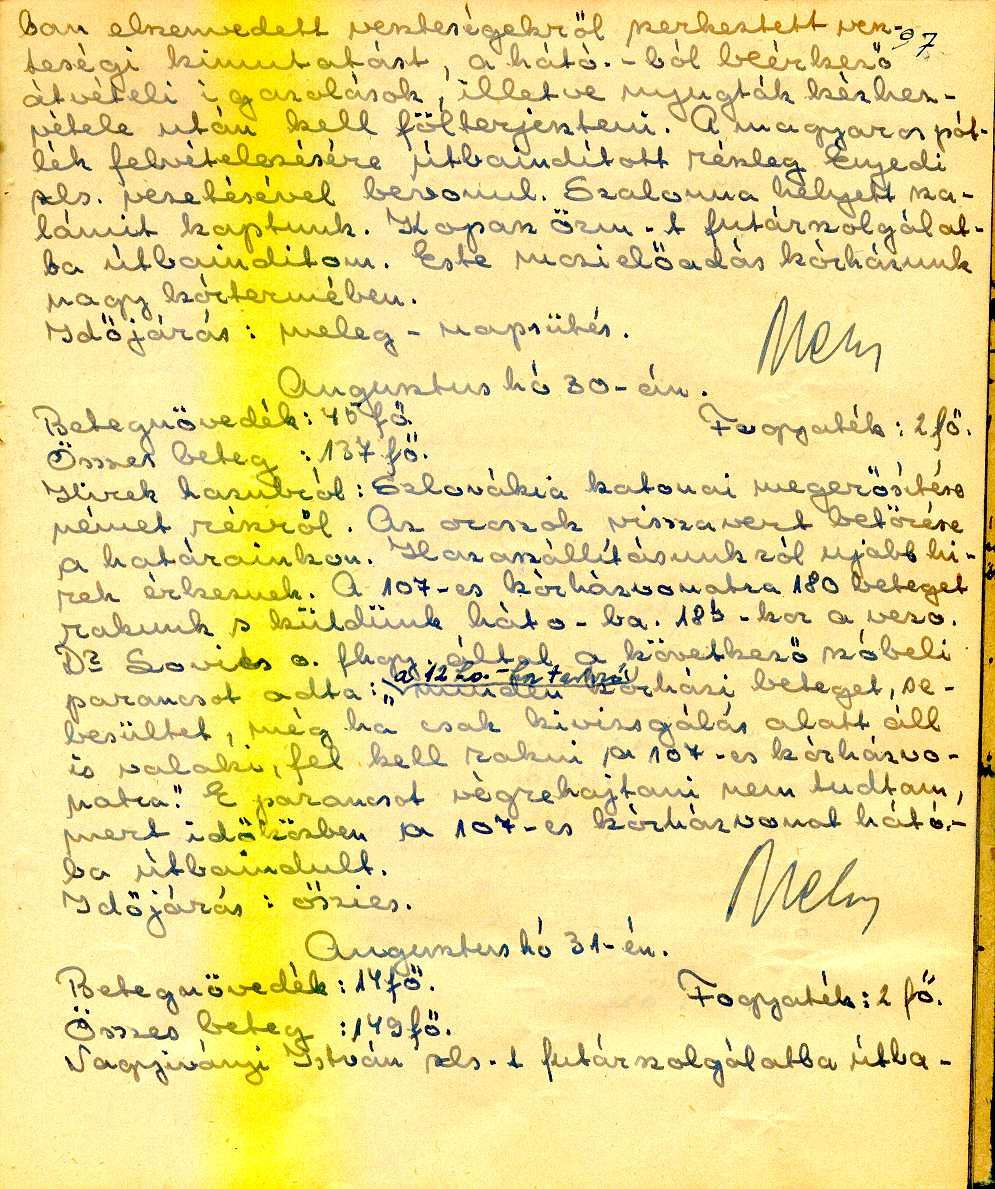 97
ban elszenvedett veszteségekről szerkesztett vesz-
teségi kimutatást, a ható.-ból beérkező
átvételi igazolások, illetve nyugták kézhez-
vétele után kell fölterjeszteni. A magyaros pót-
lék felvételezésére útbaindított részleg Enyedi
szls. vezetésével bevonul. Szalonna helyett sza-
lámit kaptunk. Kopasz őrm.-t futárszolgálat-
ba útbaindítom. Este mozielőadás kórházunk
nagy kórtermében.
Időjárás: meleg - napsütés.
Augusztus hó 30-án.
Betegnövedék: 45 fő. Fogyaték: 2 fő.
Összes beteg : 137 fő.
Hírek hazulról: Szlovákia katonai megerősítése
német részről. Az oroszok visszavert betörése
a határainkon. Hazaszállításunkról ujabb hí-
rek érkeznek. A 107-es kórházvonatra 180 beteget
rakunk s küldünk háto-ba. 18h-kor a vezo.
Dr Sovits o. fhgy. által a következő szóbeli
a 12 ho.-hoz tartozó
parancsot adta: „minden kórházi beteget, se-
besültet, még ha csak kivizsgálás alatt áll
is valaki, fel kell rakni a 107-es kórházvo-
natra." E parancsot végrehajtani nem tudtam,
mert időközben a 107-es kórházvonat ható.-
ba útbaindult.
Időjárás: őszies.
Augusztus hó 31-én.
Betegnövedék: 14 fő. Fogyaték: 2 fő.
Összes beteg : 149 fő.
Nagyiványi István szls.-t futárszolgálatba útba-